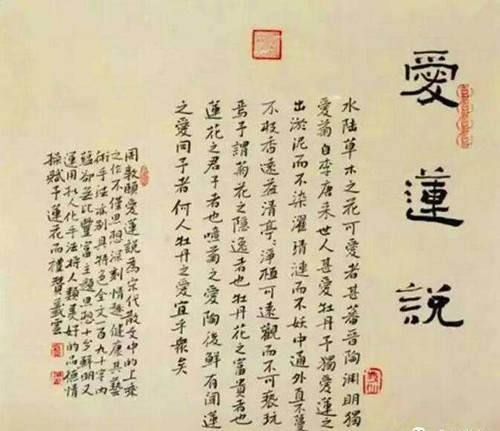 愛蓮說
水陸草木之花可愛者甚蕃晉陶淵明獨
愛菊自李唐來世人甚愛牡丹予獨愛蓮之
出淤泥而不染濯清漣而不妖中通外直不蔓
不枝香遠益清亭〻淨植可遠觀而不可褻玩
焉予謂菊花之隱逸者也牡丹花之富貴者也
蓮花之君子者也噫菊之愛陶後鮮有聞蓮
之愛同予者何人牡丹之愛宜乎眾矣
周敦頤愛蓮說為宋代散文中的上乘
之作不僅思想深刻情趣健康其藝
術手法亦別具特色全文一百九十字內
蘊卻無比豐富主題思想十分鮮明又
運用拟人化手法将人類美好的品德情
操賦予蓮花而禮贊